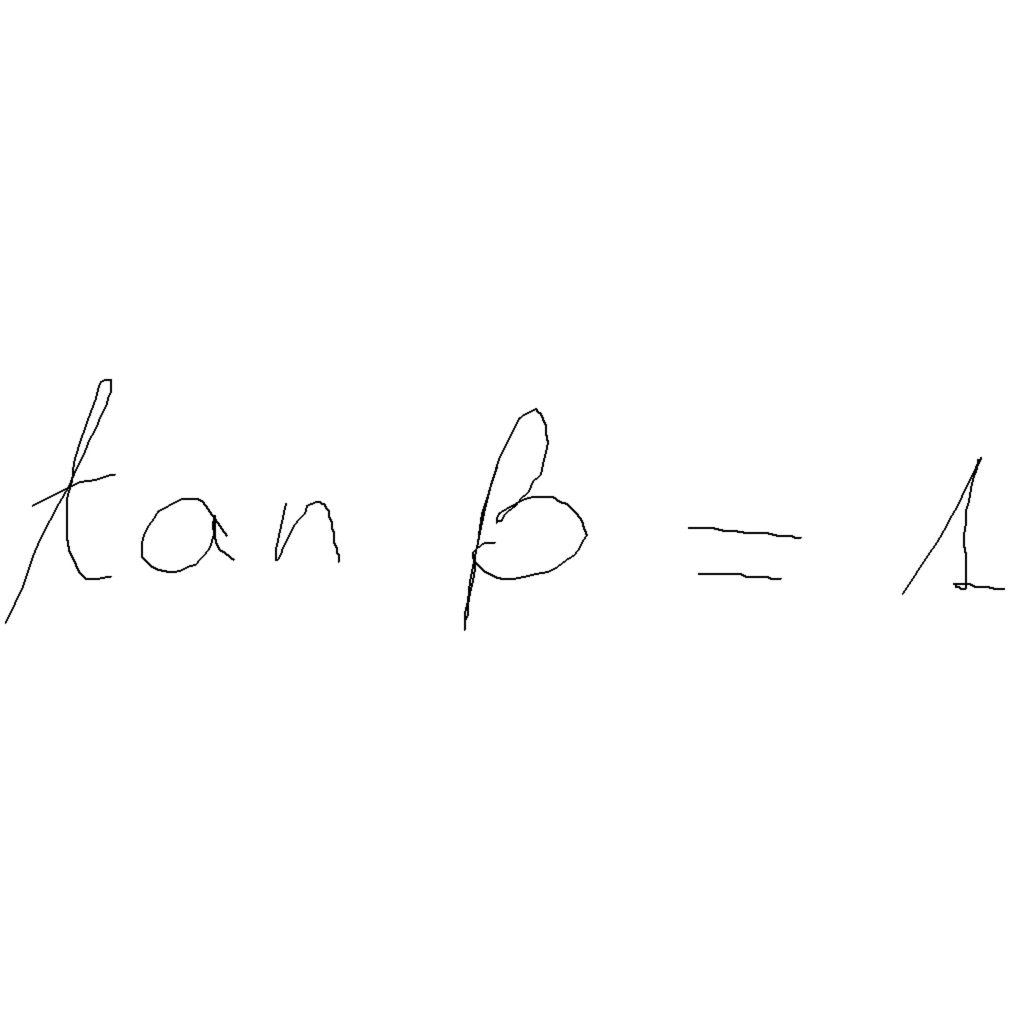 tan β = 1